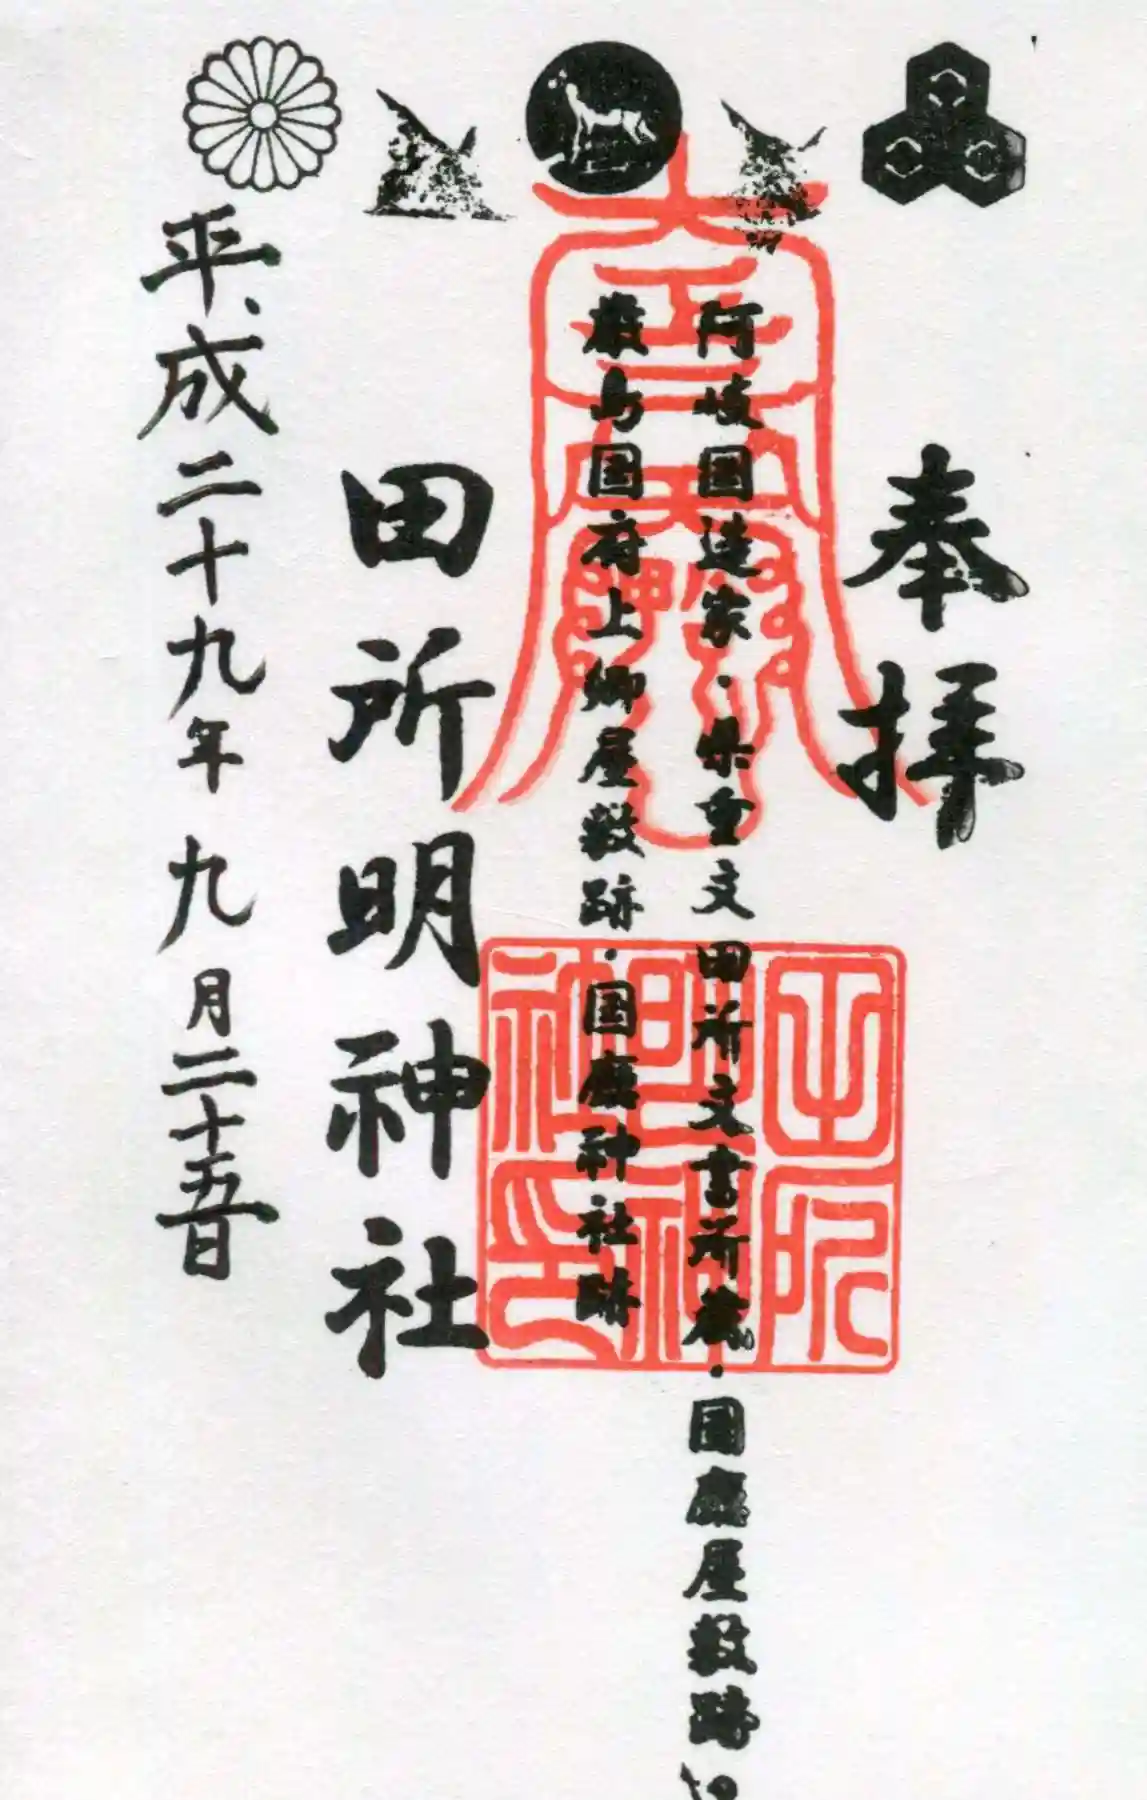 奉拝
阿岐国造家・県重文田所文書所蔵・国廳屋敷跡
厳島国府上卿屋敷跡・国廳神社跡
田所明神社
平成二十九年九月二十五日
田所明神社印